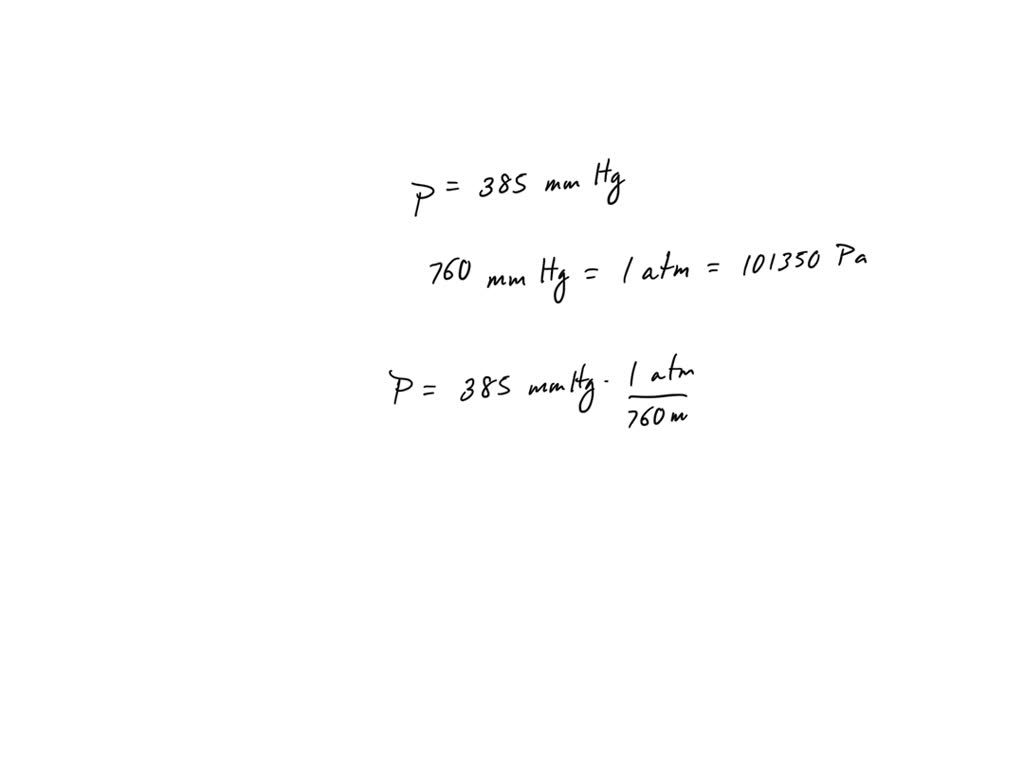 P = 385 mm Hg
760 mm Hg = 1 atm = 101350 Pa
P = 385 mmHg · 1 atm / 760 m